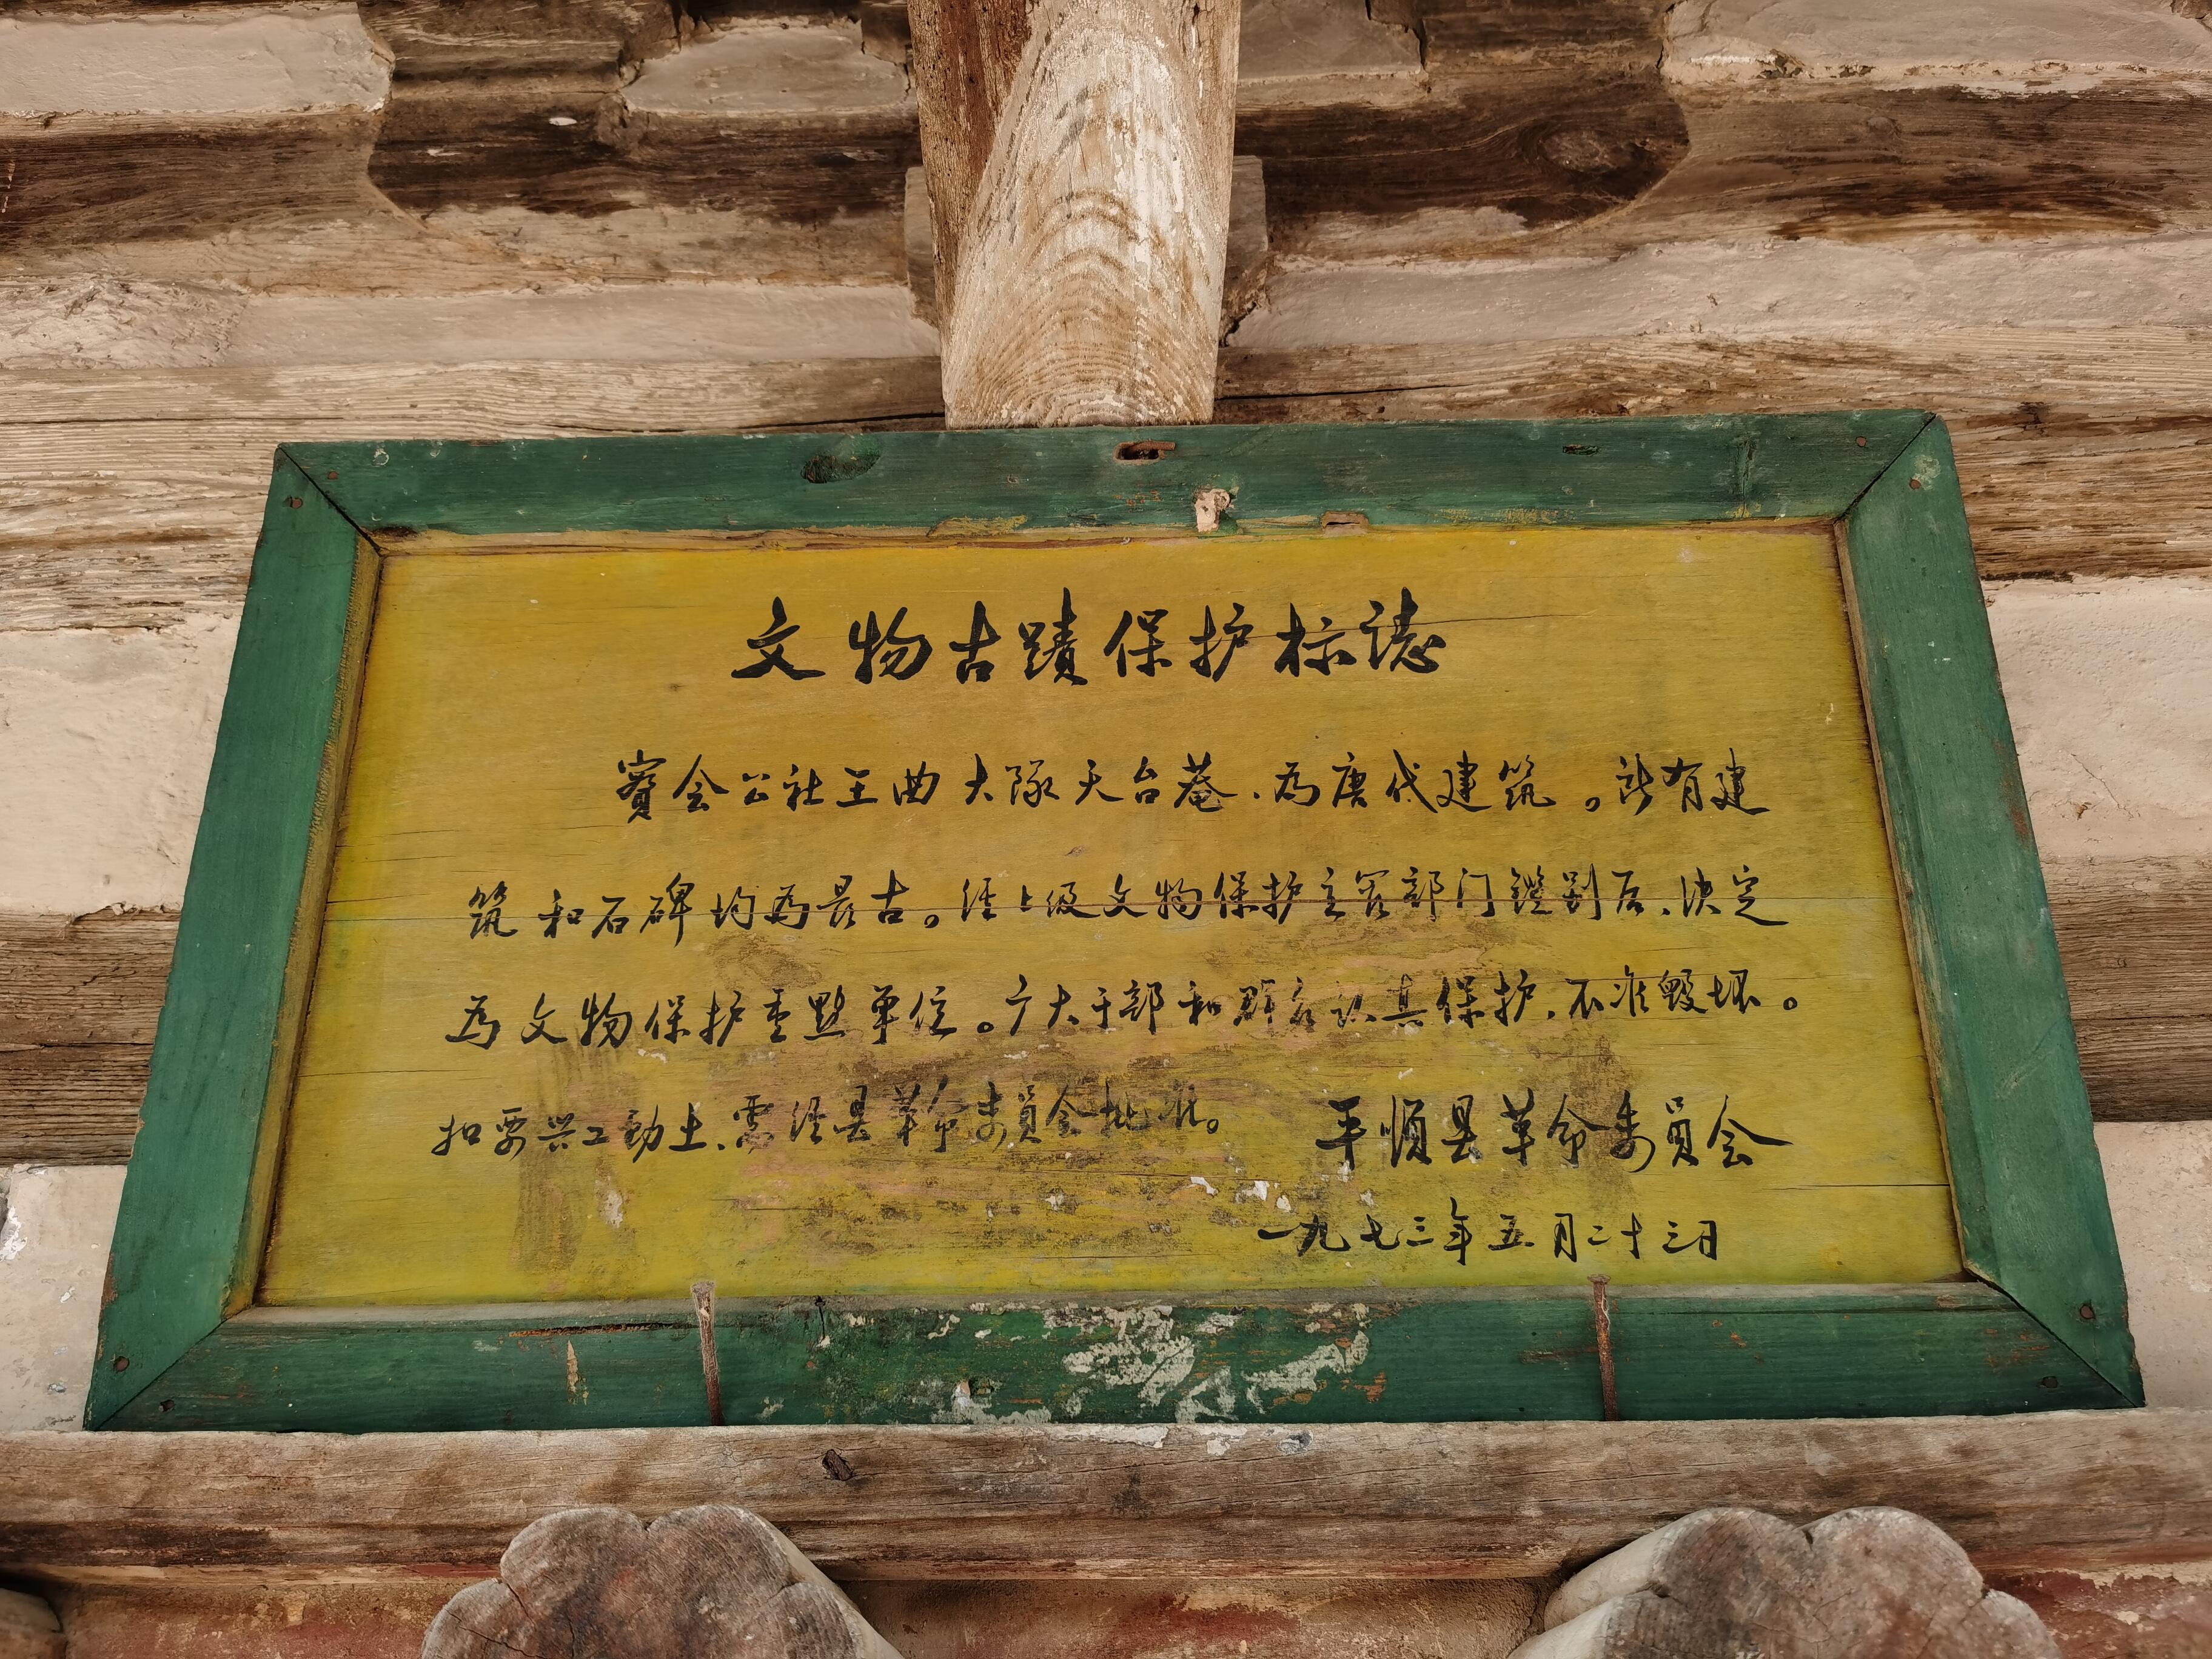 文物古蹟保护标誌
賨会公社王曲大隊天台菴、為唐代建筑。所有建
筑和石碑均為最古。经上级文物保护主管部门鑑别后、决定
為文物保护重點单位。广大干部和群众认真保护、不准毁坏。
如要兴工動土、需经县革命委員会批准。
平順县革命委員会
一九七三年五月二十三日